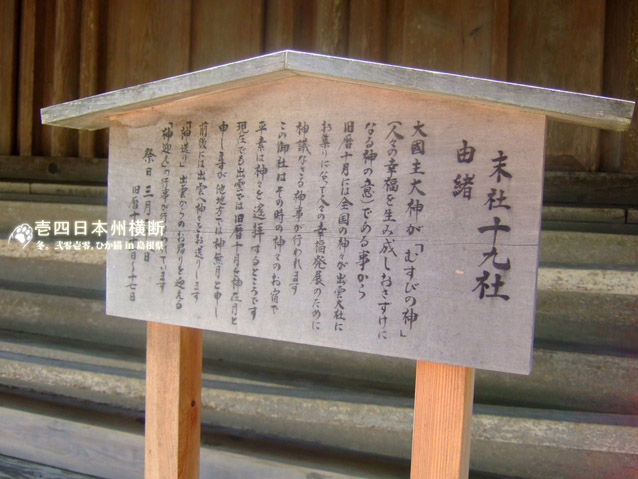 末社十九社
由緒
大國主大神が「むすびの神」
（人々の幸福を生み成しおさずけに
なる神の意）である事から
旧暦十月には全国の神々が出雲大社に
お集りになって人々の幸福発展のために
神議なさる神事が行われます
この御社はその時の神々のお宿で
平素は神々を遙拝するところです
現在でも出雲では旧暦十月を神在月と
申しますが他地方では神無月と申し
前後には出雲へ神々をお送りします
「神送り」出雲からのお帰りを迎える
「神迎え」の
祭日 三月
旧暦十
日〜十七日
壱四日本州横断
冬。弐零壱零。ひか猫 in 島根県